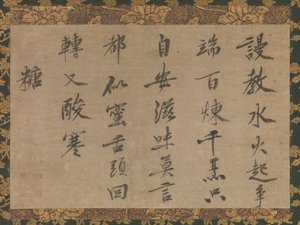 謾教水火起争
端百煉千熬只
自安滋味莫言
都似蜜舌頭回
轉又酸寒
糖